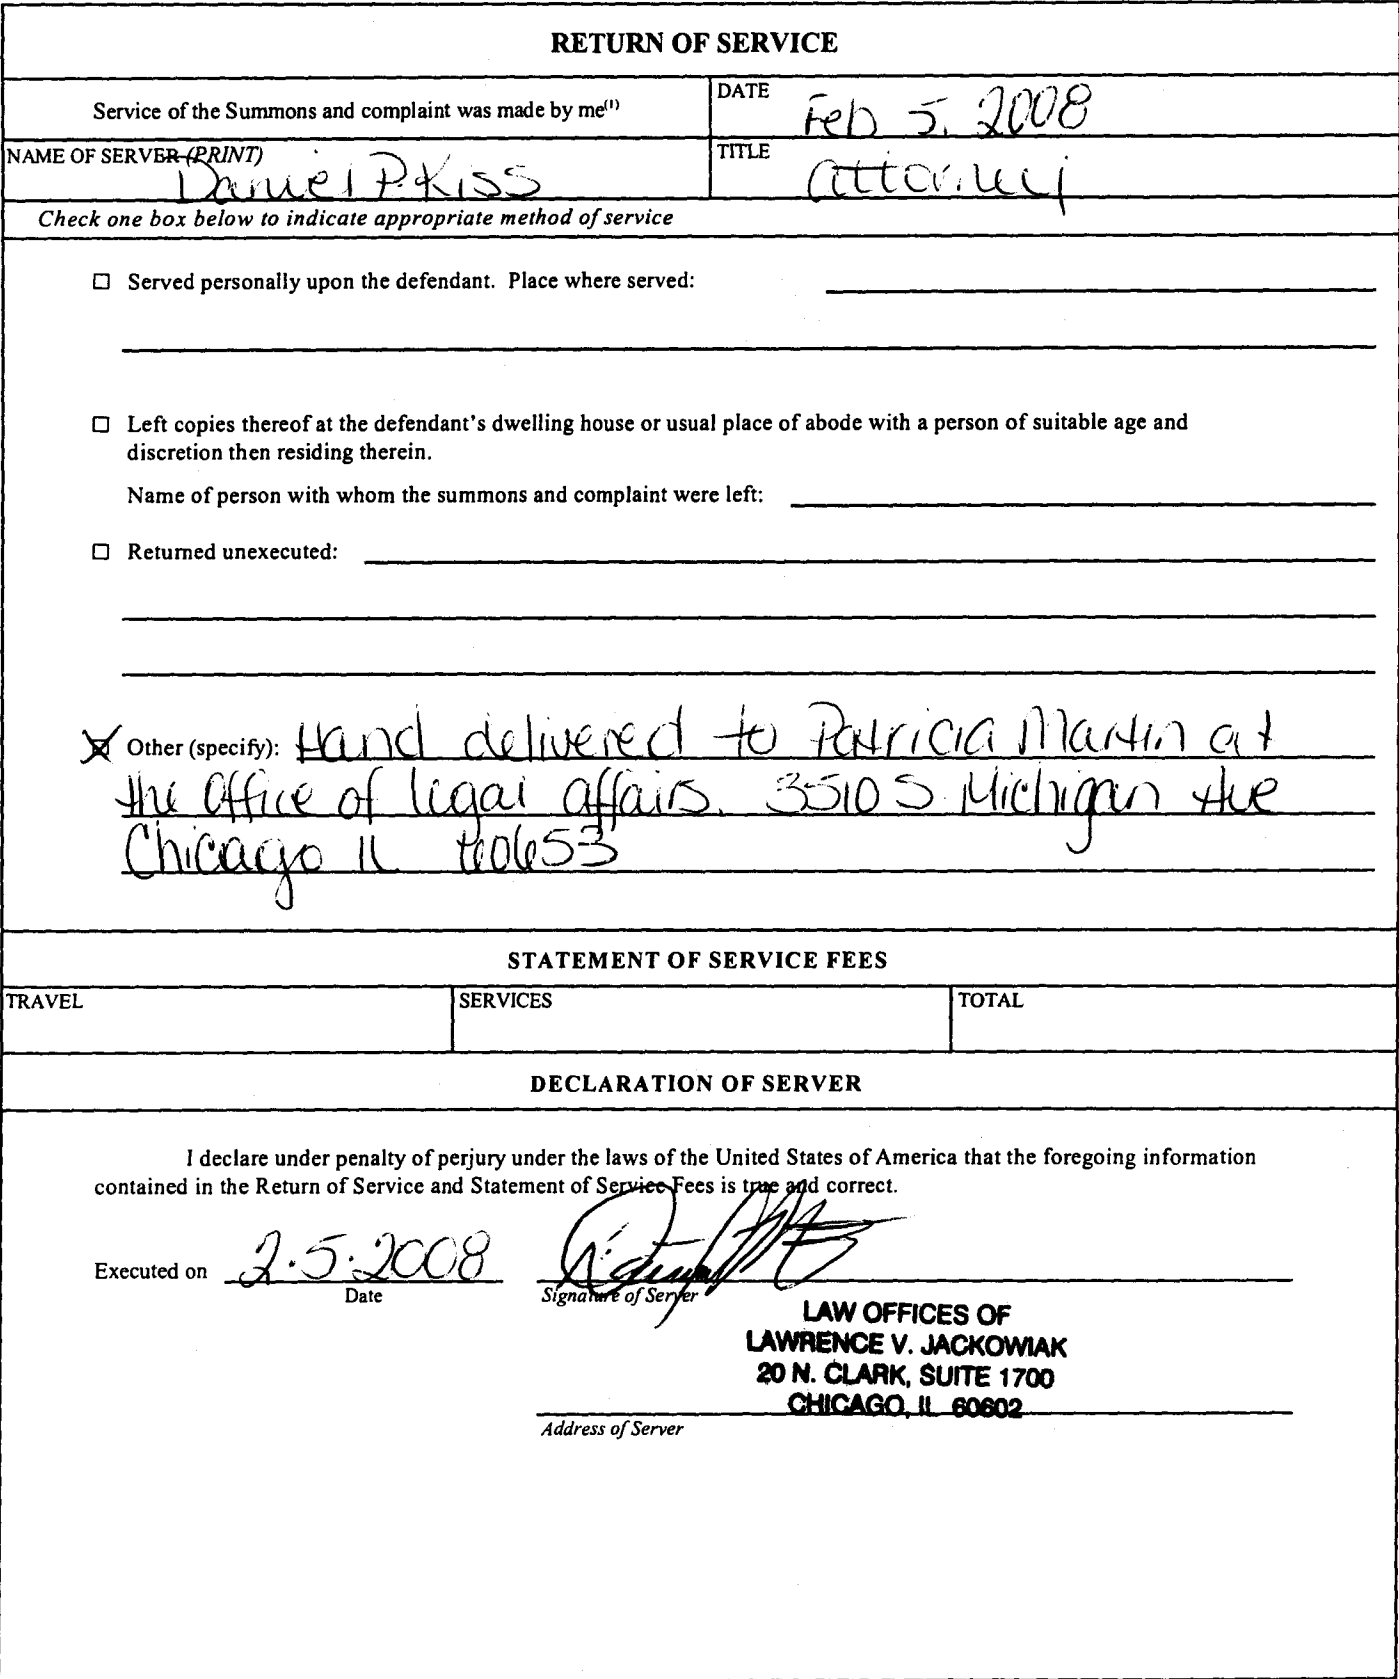 RETURN OF SERVICE
Service of the Summons and complaint was made by me(1)
DATE
Feb 5, 2008
NAME OF SERVER (PRINT)
Daniel P. Kiss
TITLE
attorney
Check one box below to indicate appropriate method of service
☐ Served personally upon the defendant. Place where served:
☐ Left copies thereof at the defendant's dwelling house or usual place of abode with a person of suitable age and
discretion then residing therein.
Name of person with whom the summons and complaint were left:
☐ Returned unexecuted:
☒ Other (specify): Hand delivered to Patricia Martin at
the Office of legal affairs. 3510 S Michigan Ave
Chicago IL 60653
STATEMENT OF SERVICE FEES
TRAVEL
SERVICES
TOTAL
DECLARATION OF SERVER
I declare under penalty of perjury under the laws of the United States of America that the foregoing information
contained in the Return of Service and Statement of Service Fees is true and correct.
Executed on 2.5.2008
Date
Signature of Server
LAW OFFICES OF
LAWRENCE V. JACKOWIAK
20 N. CLARK, SUITE 1700
CHICAGO, IL 60602
Address of Server